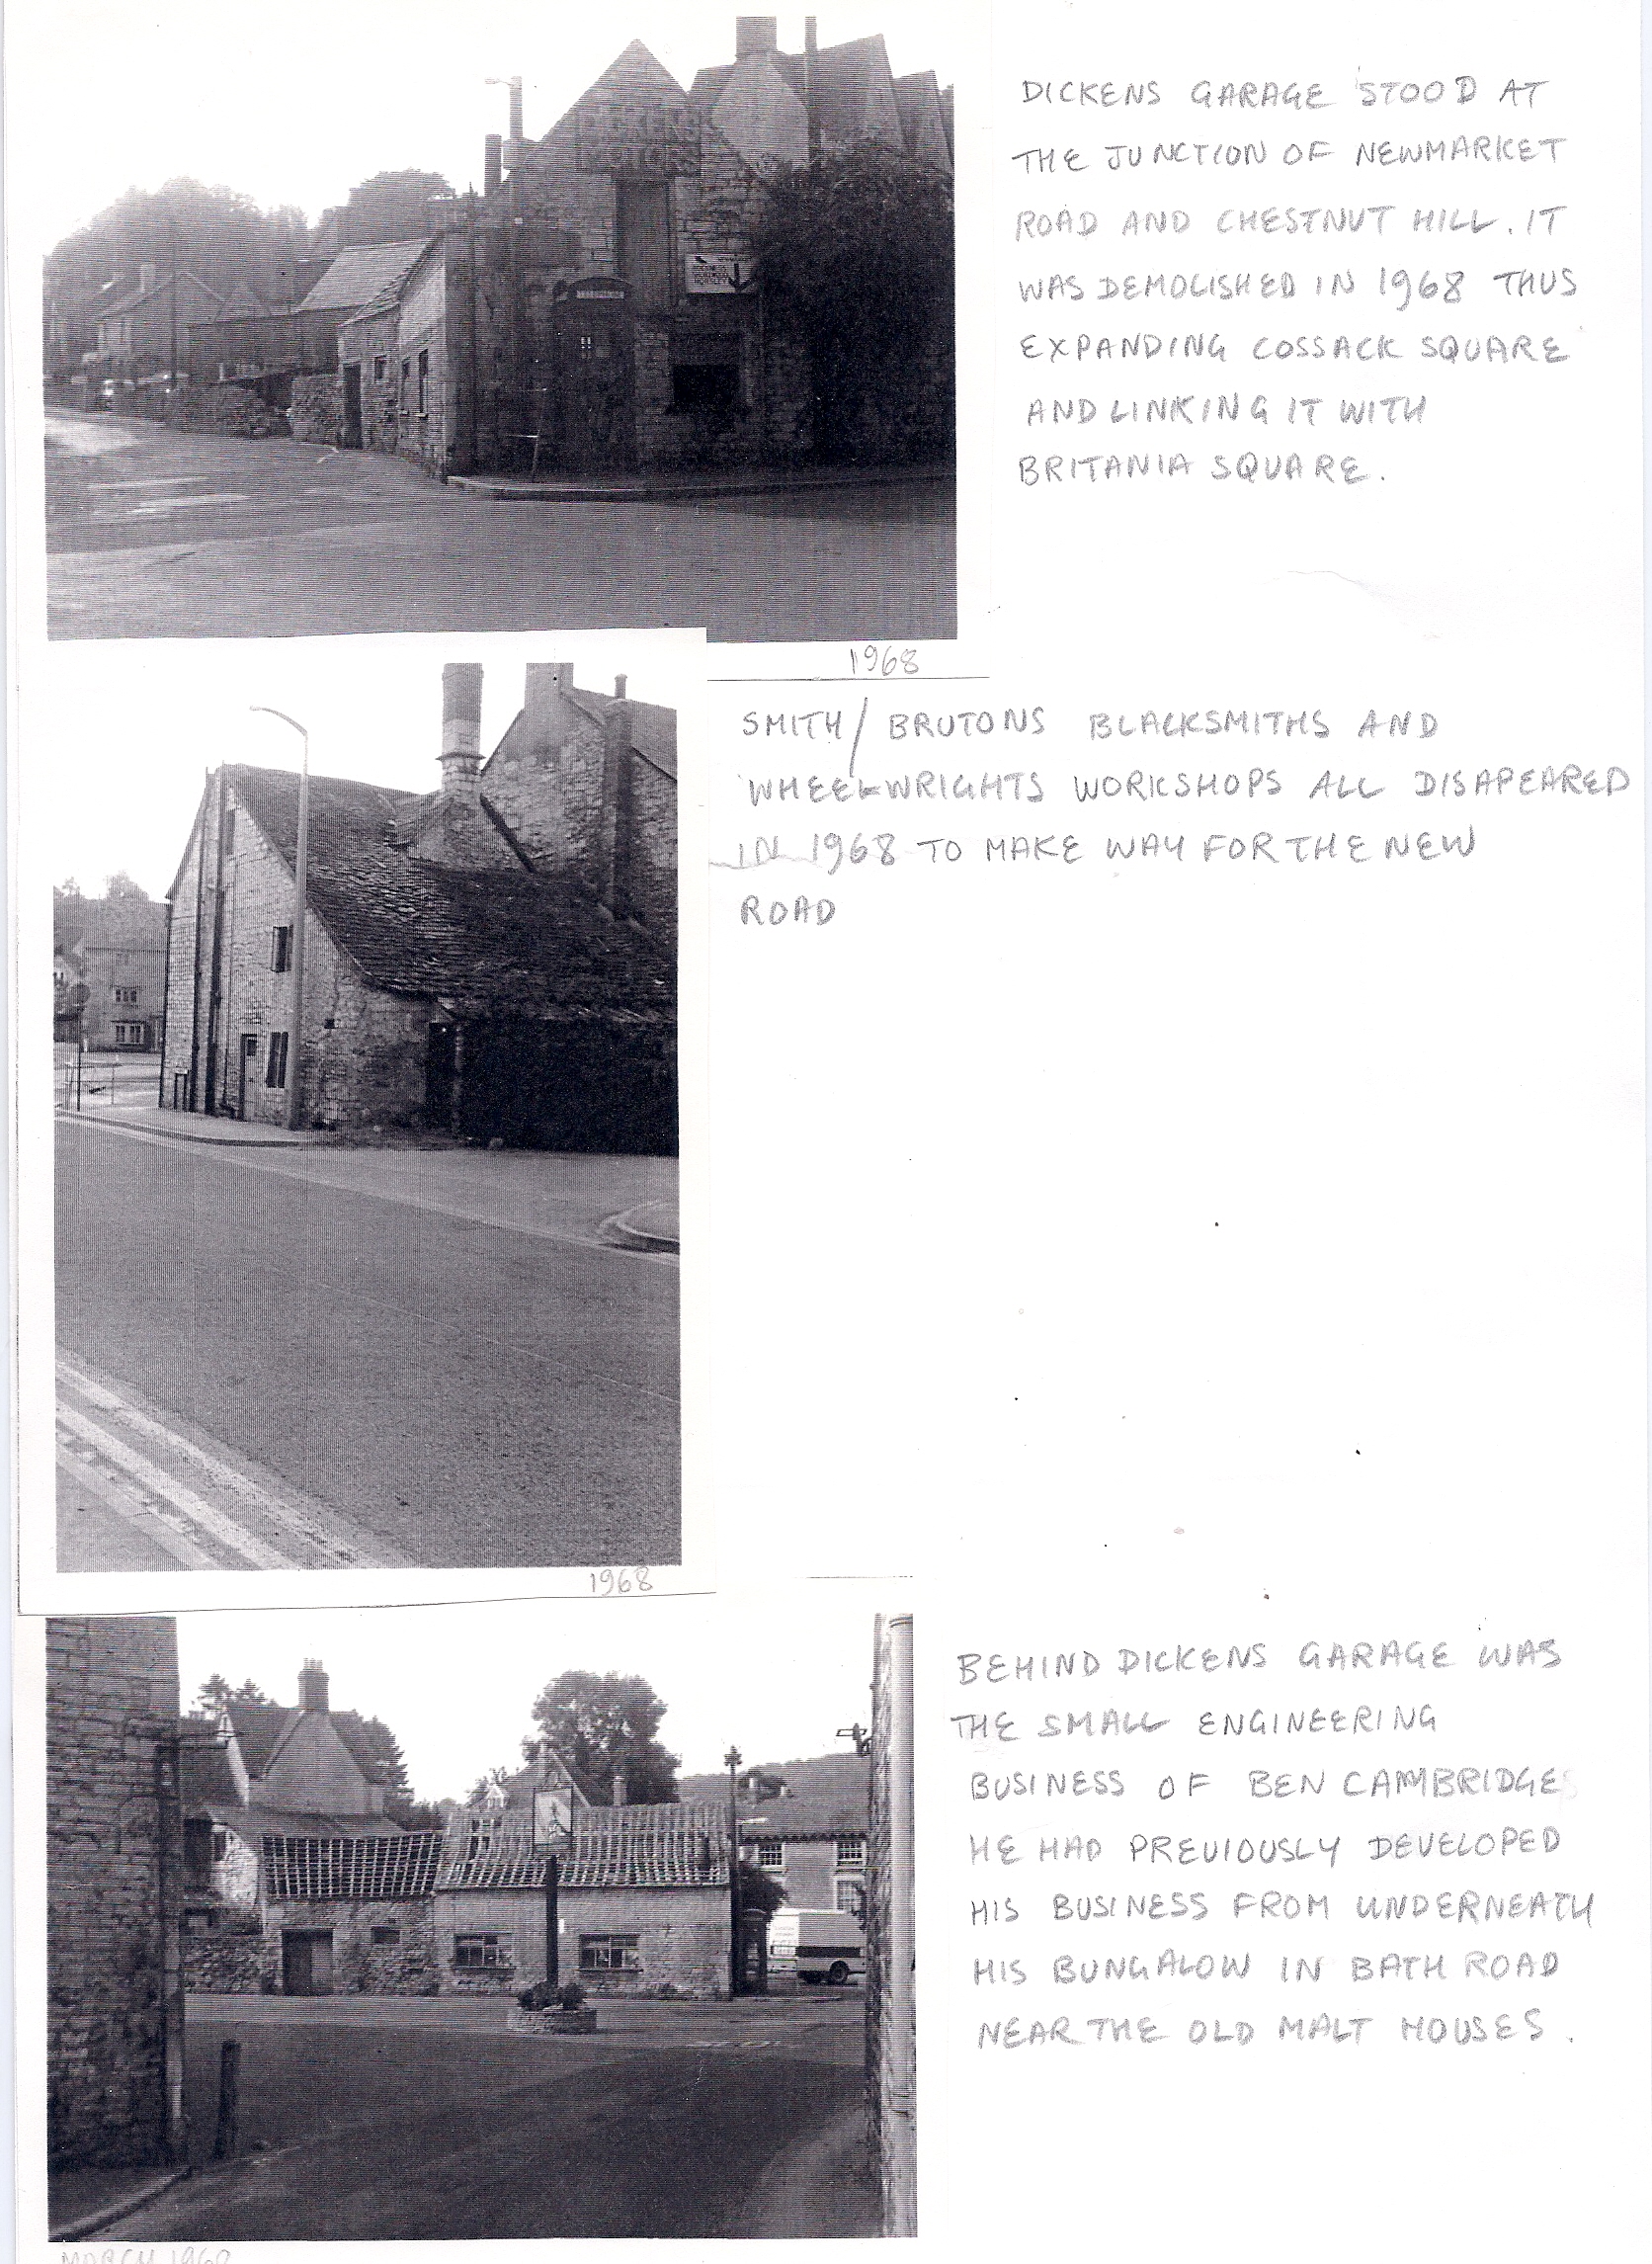 DICKENS GARAGE STOOD AT
THE JUNCTION OF NEWMARKET
ROAD AND CHESTNUT HILL. IT
WAS DEMOLISHED IN 1968 THUS
EXPANDING COSSACK SQUARE
AND LINKING IT WITH
BRITANIA SQUARE.
DICKENS
TELEPHONE
1968
SMITH/BRUTONS BLACKSMITHS AND
WHEELWRIGHTS WORKSHOPS ALL DISAPEARED
IN 1968 TO MAKE WAY FOR THE NEW
ROAD
1968
BEHIND DICKENS GARAGE WAS
THE SMALL ENGINEERING
BUSINESS OF BEN CAMBRIDGE
HE HAD PREVIOUSLY DEVELOPED
HIS BUSINESS FROM UNDERNEATH
HIS BUNGALOW IN BATH ROAD
NEAR THE OLD MALT HOUSES.
MARCH 1968